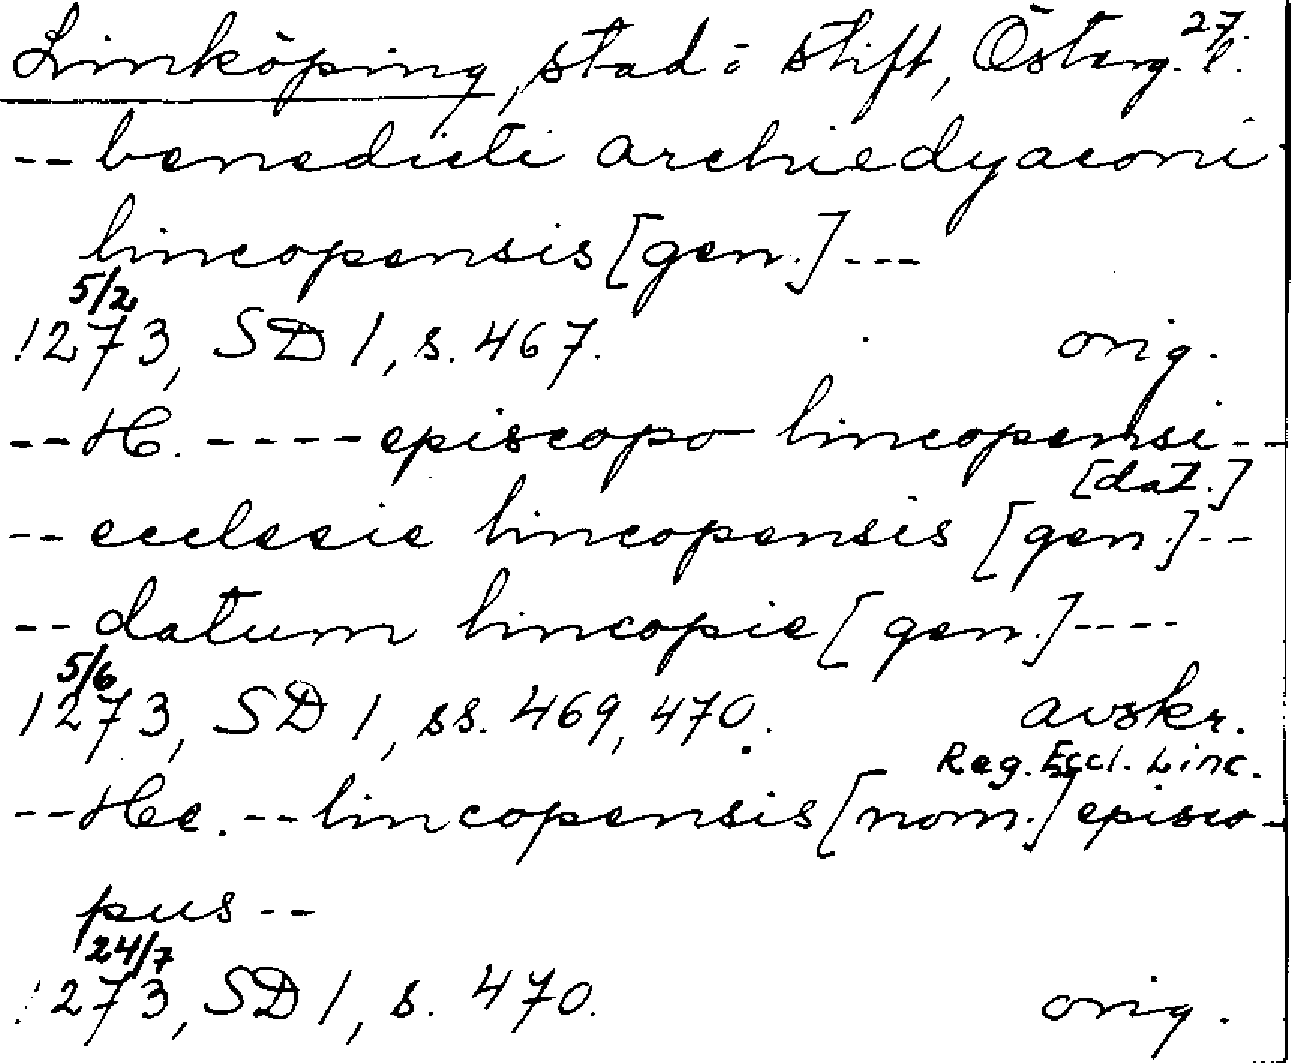 27.
Linköping, stad o stift, Österg. l.
-- benedicti archiedyaconi
lincopensis [gen.] ---
5/2
1273, SD 1, s. 467. orig.
-- H. ---- episcopo lincopensi --
[dat.]
-- ecclesie lincopensis [gen.] --
-- datum lincopie [gen.] ----
5/6
1273, SD 1, ss. 469, 470. avskr.
Reg. Eccl. Linc.
-- He. -- lincopensis [nom.] episco-
pus --
24/7
1273, SD 1, s. 470. orig.